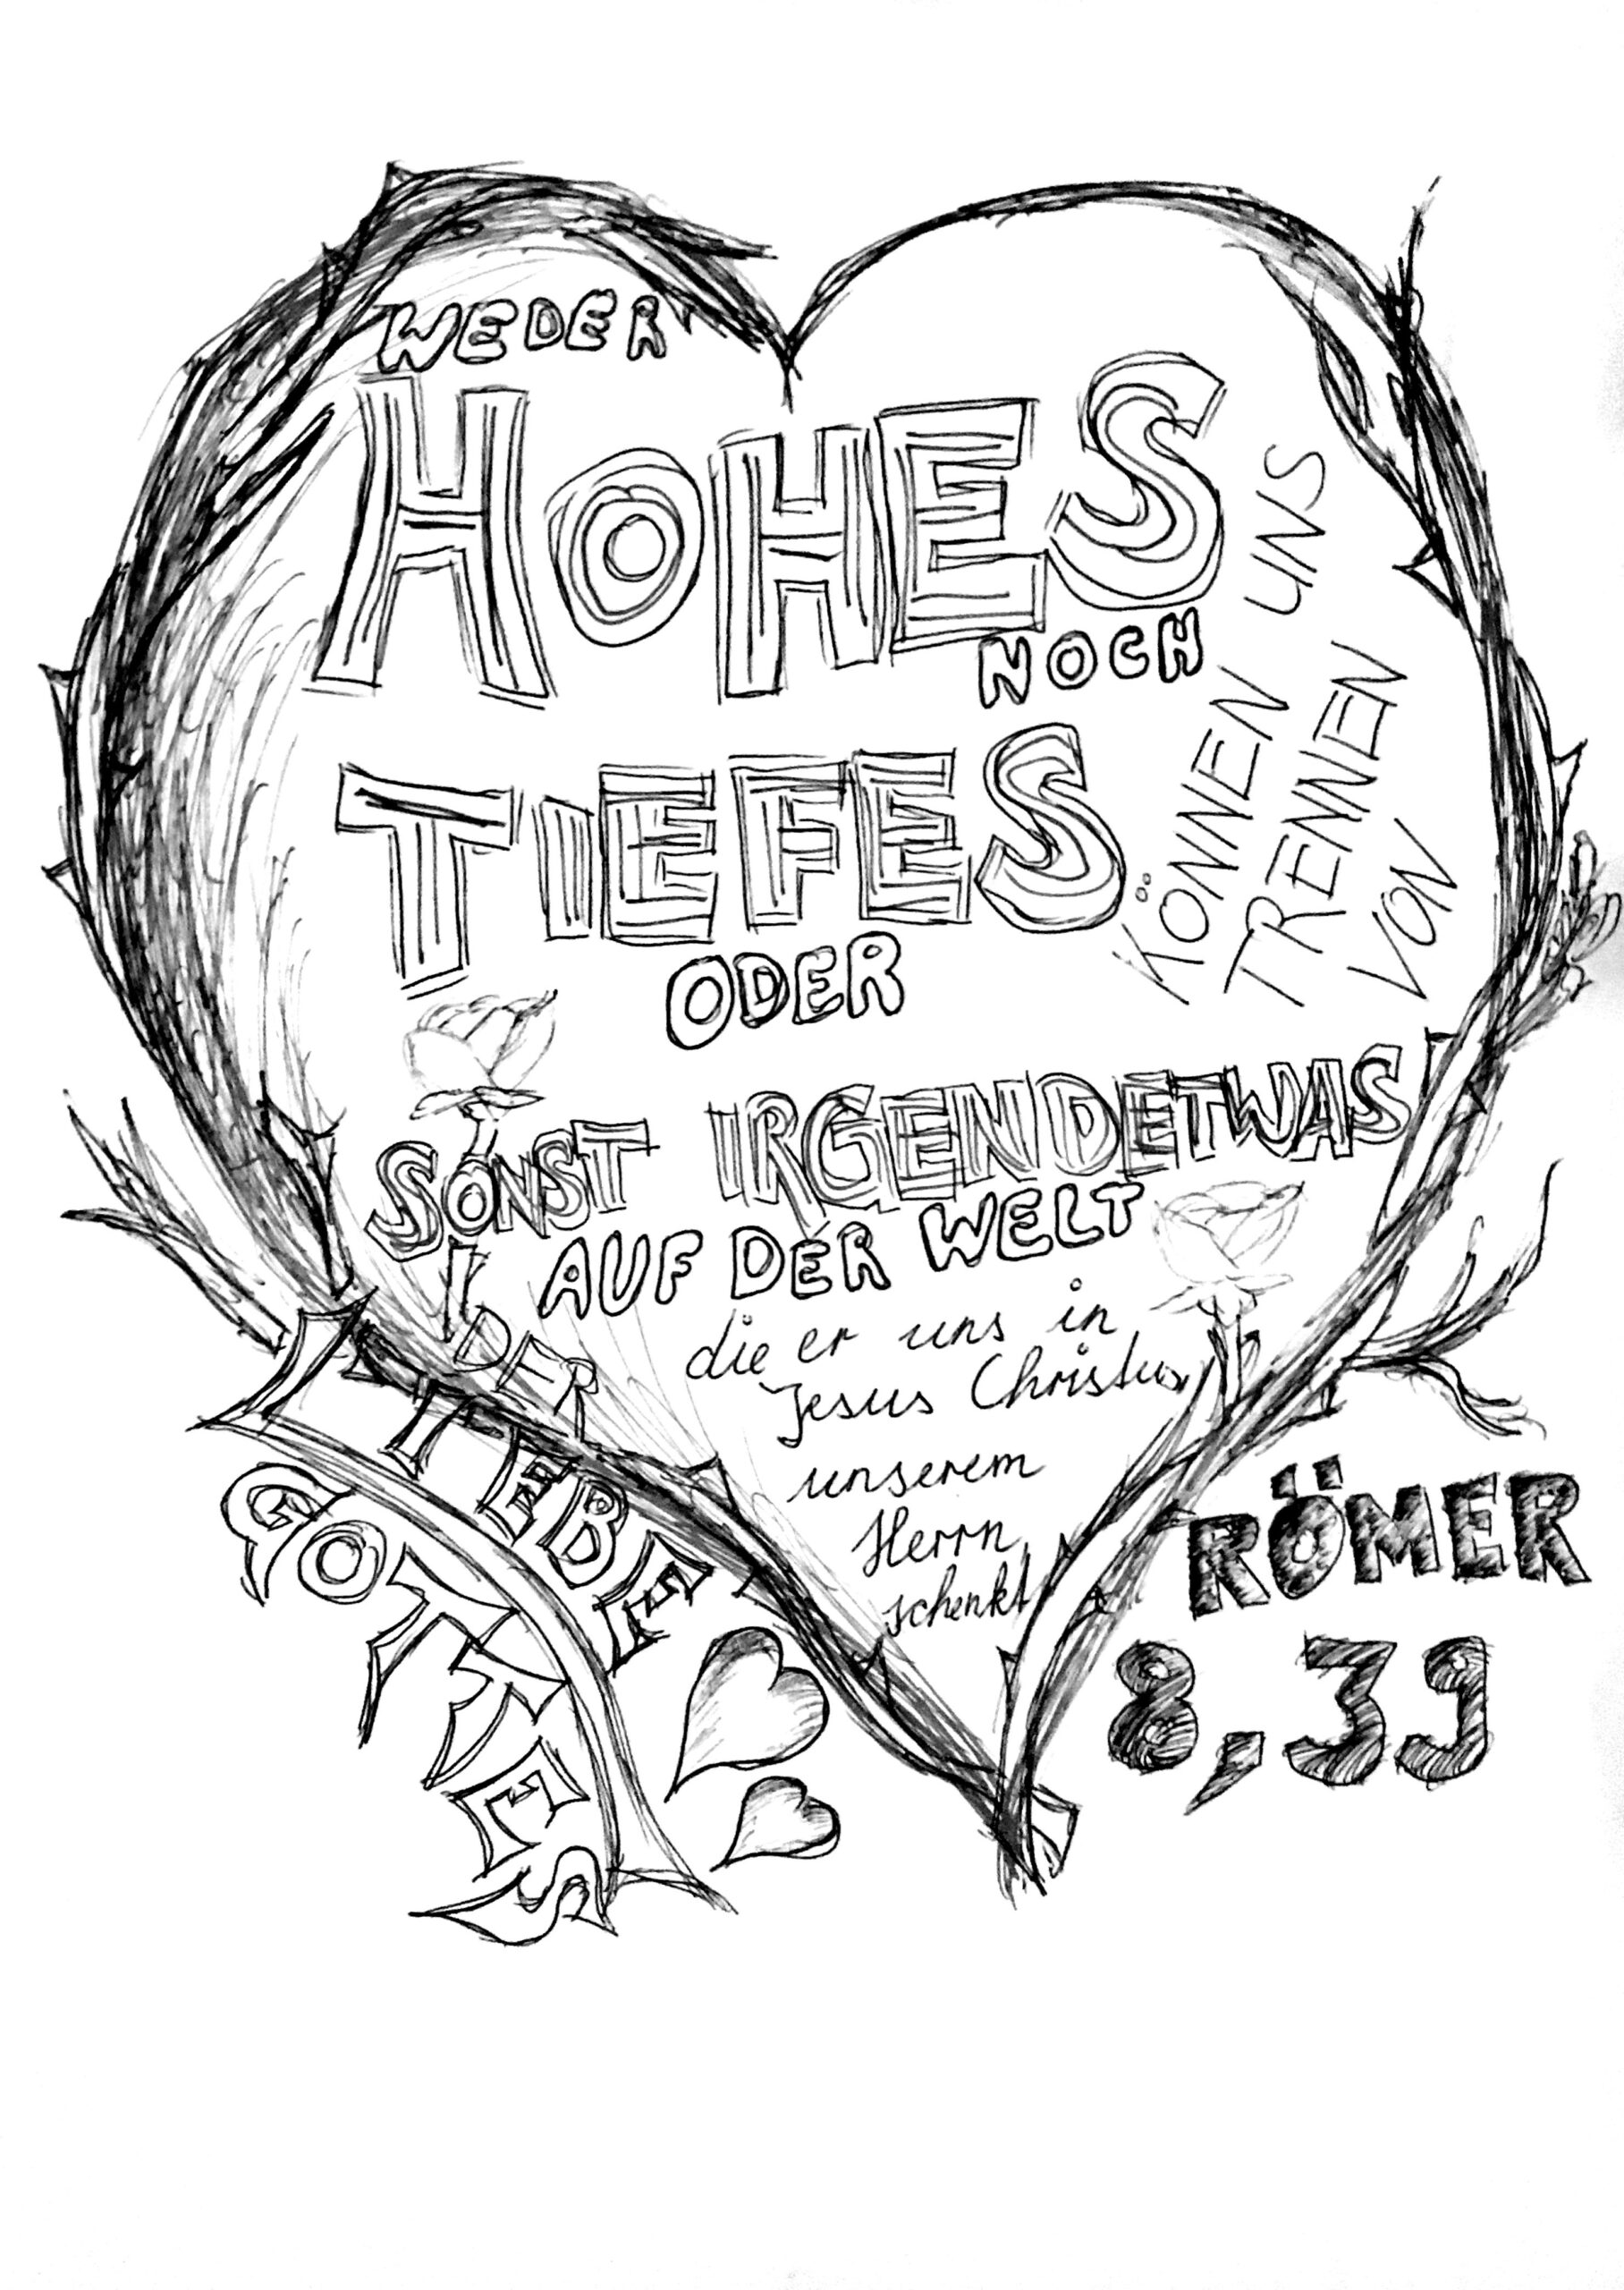 WEDER
HOHES
NOCH
TIEFES
ODER
SONST IRGENDETWAS
AUF DER WELT
KÖNNEN UNS
TRENNEN
VON
DER
LIEBE
GOTTES
die er uns in
Jesus Christus
unserem
Herrn
schenkt
RÖMER
8,39